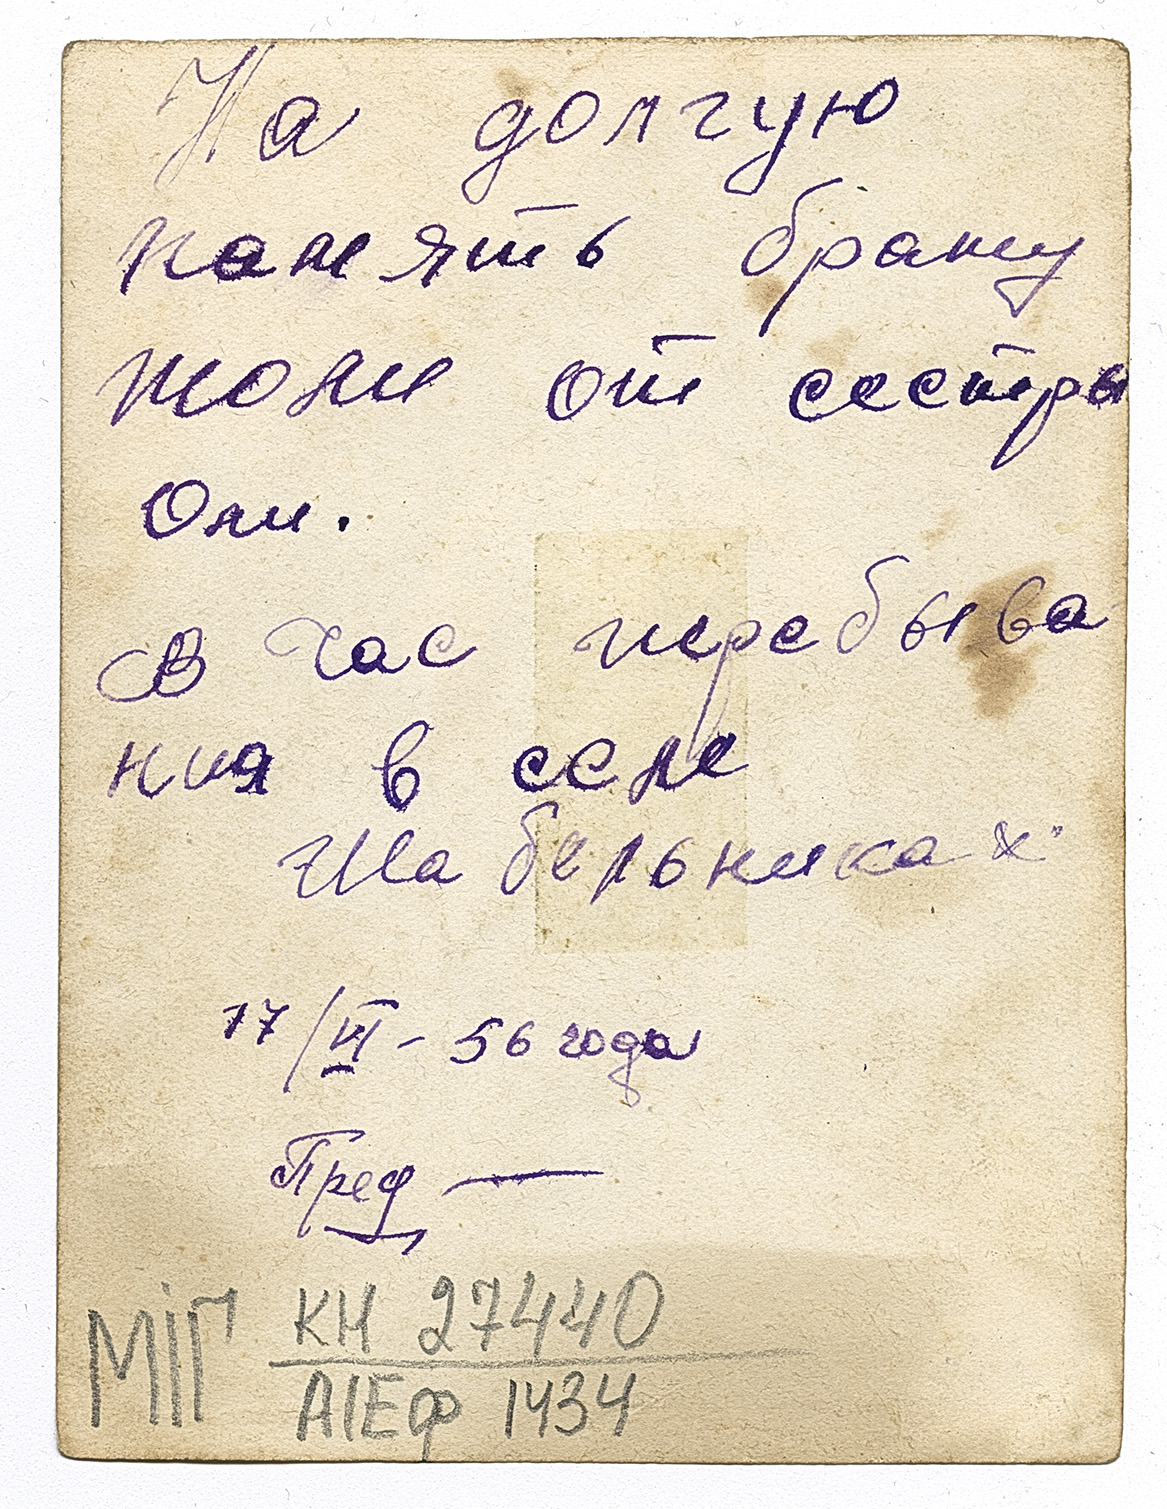 На долгую
память брату
Толи от сестры
Оли.
В час перебыва
ния в селе
Шабельниках
17/VI - 56 года
Пред —
МІГ КН 27440
АІЕФ 1434